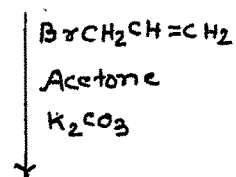 BrCH₂CH=CH₂
Acetone
K₂CO₃